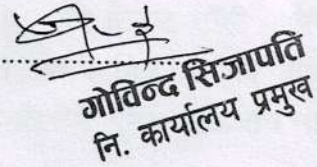 गोविन्द सिजापति
नि. कार्यालय प्रमुख